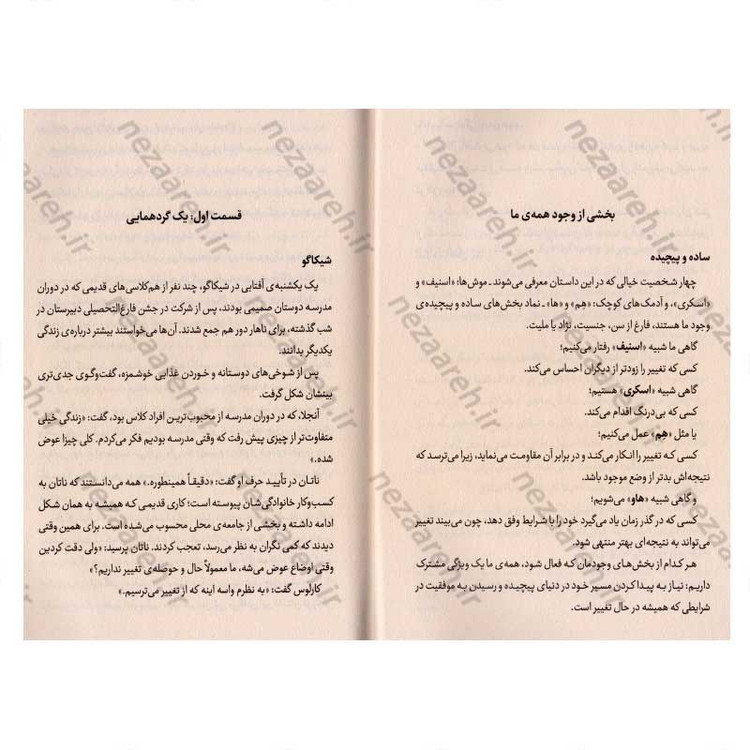 بخشی از وجود همه‌ی ما
ساده و پیچیده
چهار شخصیت خیالی که در این داستان معرفی می‌شوند ـ موش‌ها: «اسنیف» و
«اسکری»، و آدمک‌های کوچک: «هِم» و «ها» ـ نماد بخش‌های ساده و پیچیده‌ی
وجود ما هستند، فارغ از سن، جنسیت، نژاد یا ملیت.
گاهی ما شبیه «اسنیف» رفتار می‌کنیم؛
کسی که تغییر را زودتر از دیگران احساس می‌کند.
گاهی شبیه «اسکری» هستیم؛
کسی که بی‌درنگ اقدام می‌کند.
یا مثل «هِم» عمل می‌کنیم؛
کسی که تغییر را انکار می‌کند و در برابر آن مقاومت می‌نماید، زیرا می‌ترسد که
نتیجه‌اش بدتر از وضع موجود باشد.
و گاهی شبیه «هاو» می‌شویم؛
کسی که در گذر زمان یاد می‌گیرد خود را با شرایط وفق دهد، چون می‌بیند تغییر
می‌تواند به نتیجه‌ای بهتر منتهی شود.
هر کدام از بخش‌های وجودمان که فعال شود، همه‌ی ما یک ویژگی مشترک
داریم: نیاز به پیدا کردن مسیر خود در دنیای پیچیده و رسیدن به موفقیت در
شرایطی که همیشه در حال تغییر است.
قسمت اول: یک گردهمایی
شیکاگو
یک یکشنبه‌ی آفتابی در شیکاگو، چند نفر از هم‌کلاسی‌های قدیمی که در دوران
مدرسه دوستان صمیمی بودند، پس از شرکت در جشن فارغ‌التحصیلی دبیرستان در
شب گذشته، برای ناهار دور هم جمع شدند. آن‌ها می‌خواستند بیشتر درباره‌ی زندگی
یکدیگر بدانند.
پس از شوخی‌های دوستانه و خوردن غذایی خوشمزه، گفت‌وگوی جدی‌تری
بینشان شکل گرفت.
آنجلا، که در دوران مدرسه از محبوب‌ترین افراد کلاس بود، گفت: «زندگی خیلی
متفاوت‌تر از چیزی پیش رفت که وقتی مدرسه بودیم فکر می‌کردم. کلی چیزا عوض
شده.»
ناتان در تأیید حرف او گفت: «دقیقاً همینطوره.» همه می‌دانستند که ناتان به
کسب‌وکار خانوادگی‌شان پیوسته است؛ کاری قدیمی که همیشه به همان شکل
ادامه داشته و بخشی از جامعه‌ی محلی محسوب می‌شده است. برای همین وقتی
دیدند که کمی نگران به نظر می‌رسد، تعجب کردند. ناتان پرسید: «ولی دقت کردین
وقتی اوضاع عوض می‌شه، ما معمولاً حال و حوصله‌ی تغییر نداریم؟»
کارلوس گفت: «به نظرم واسه اینه که از تغییر می‌ترسیم.»
nezaareh.ir
nezaareh.ir
nezaareh.ir
nezaareh.ir
nezaareh.ir
nezaareh.ir